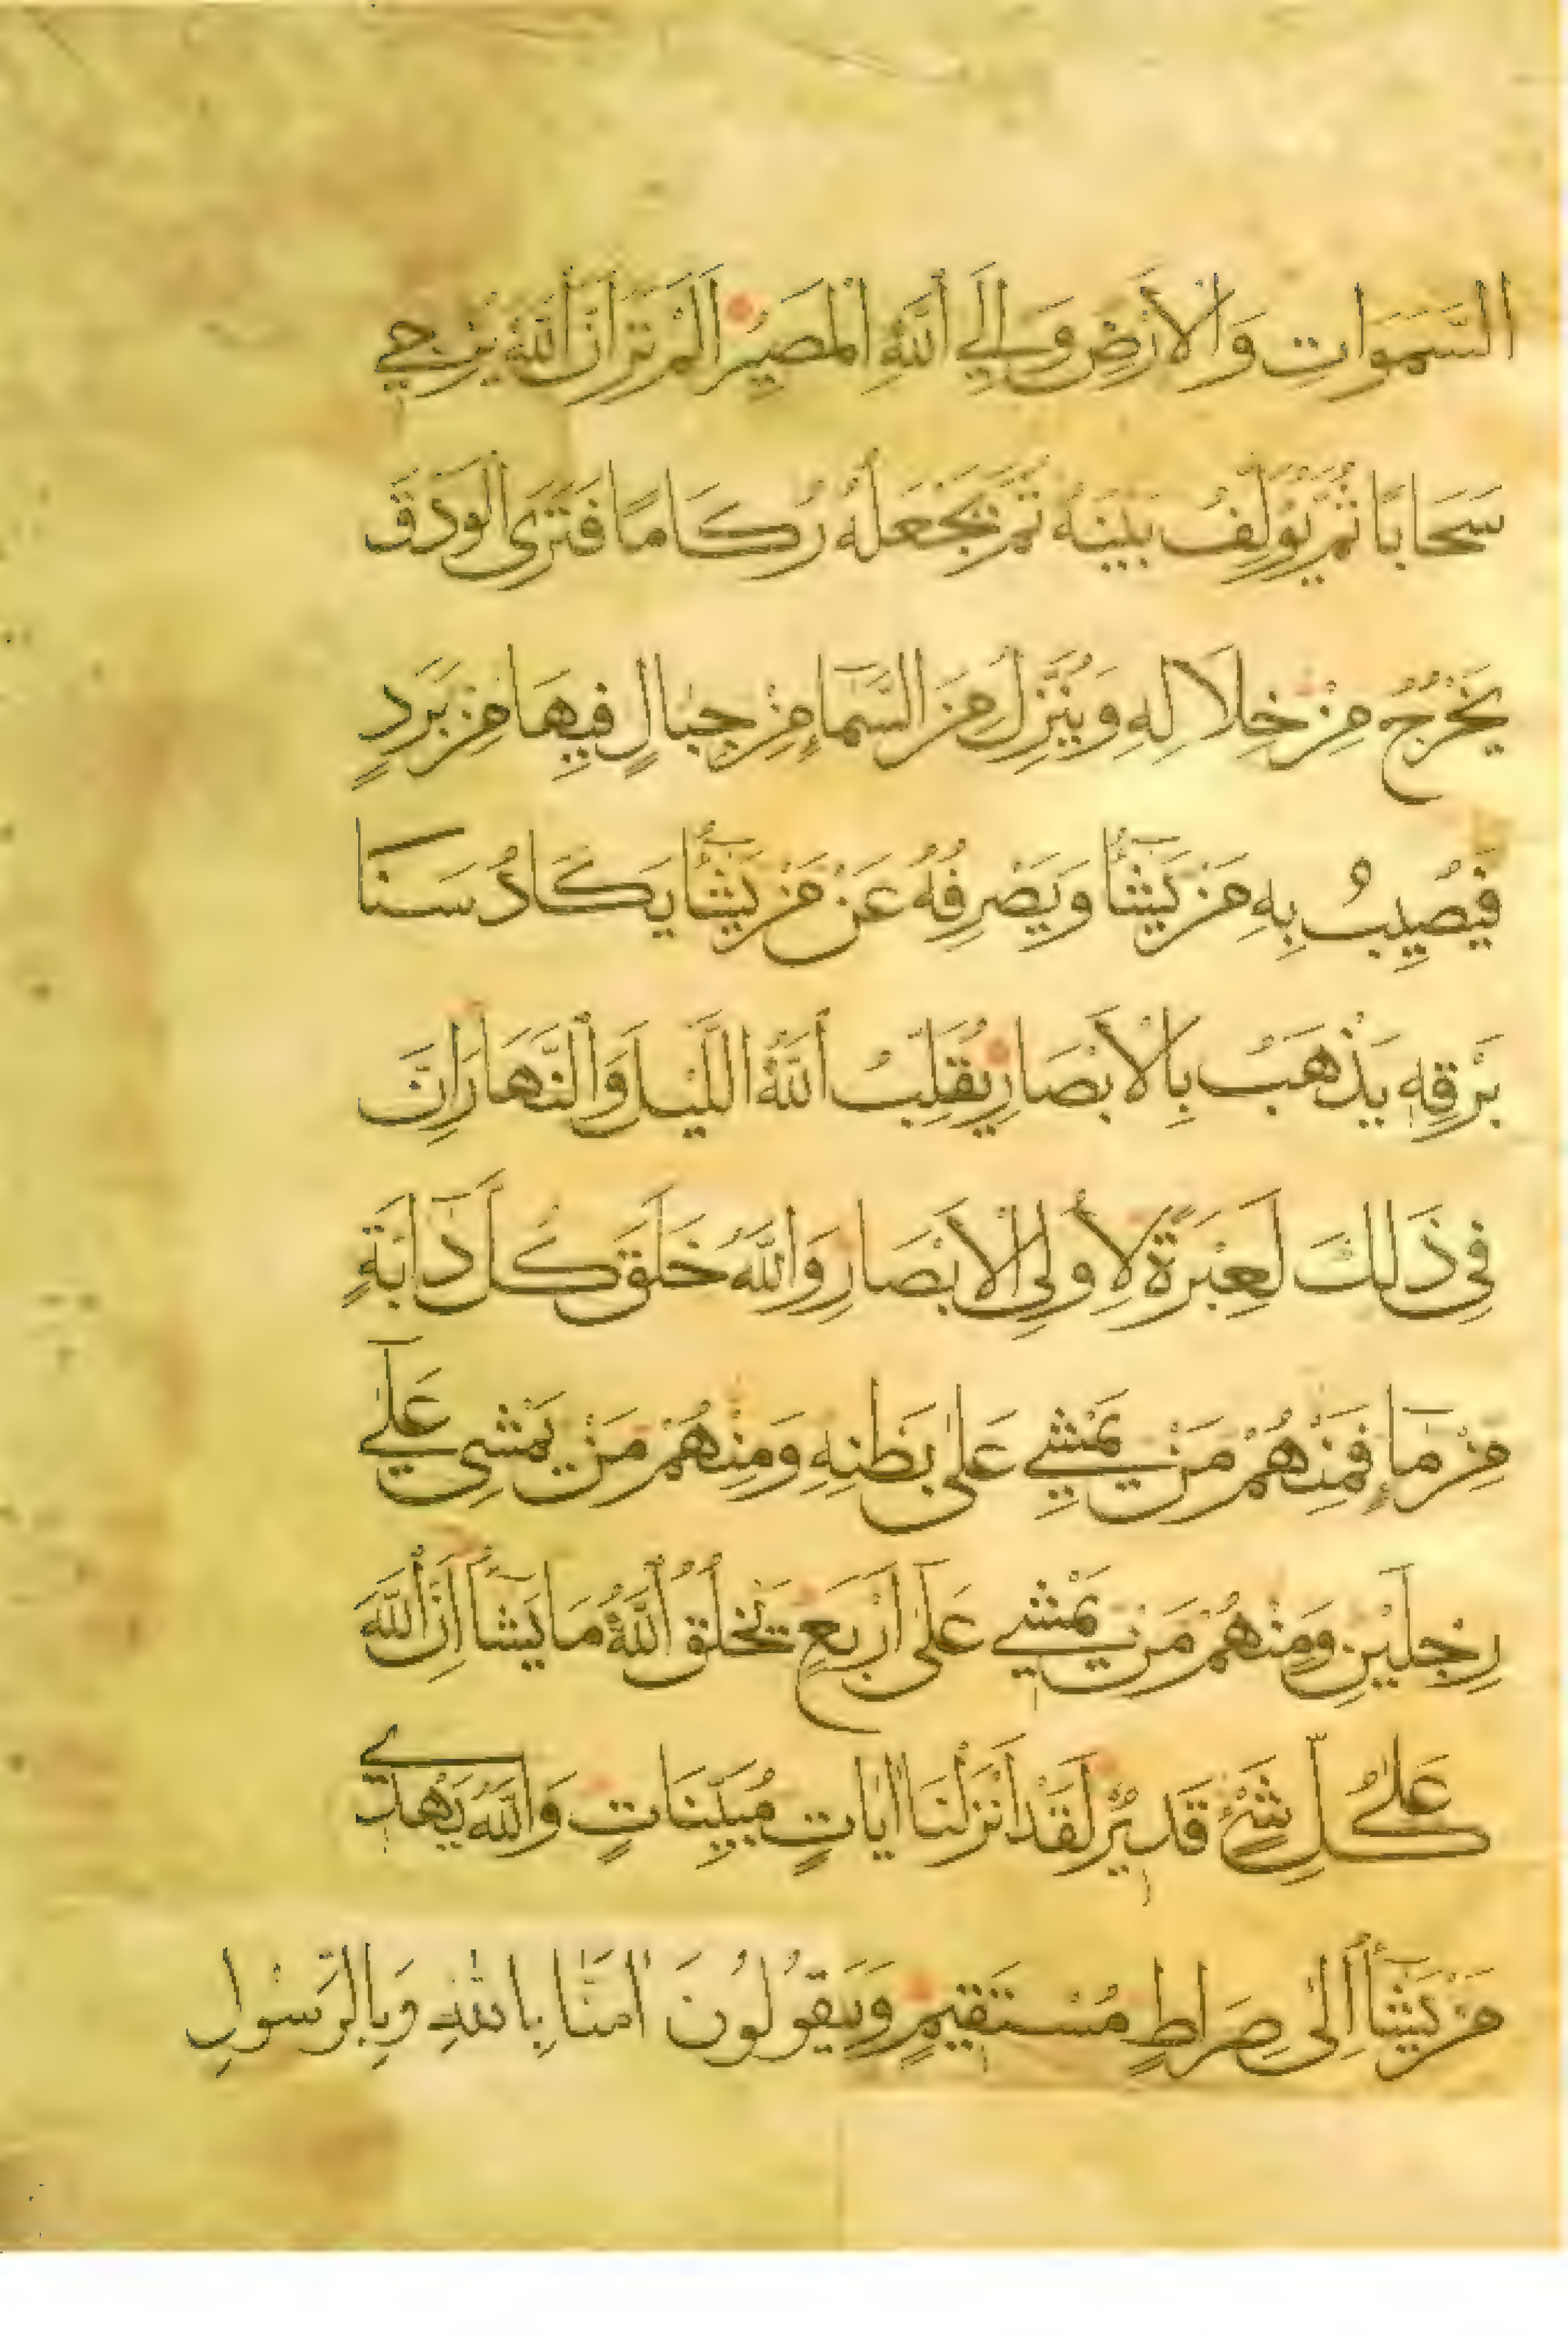 السَّمَوَاتِ وَالْأَرْضِ وَإِلَي اللَّهِ الْمَصِيرُ أَلَمْ تَرَ أَنَّ اللَّهَ يُزْجِي
سَحَابًا ثُمَّ يُؤَلِّفُ بَيْنَهُ ثُمَّ يَجْعَلُهُ رُكَامًا فَتَرَى الْوَدْقَ
يَخْرُجُ مِنْ خِلَالِهِ وَيُنَزِّلُ مِنَ السَّمَآءِ مِنْ جِبَالٍ فِيهَا مِنْ بَرَدٍ
فَيُصِيبُ بِهِ مَنْ يَشَآءُ وَيَصْرِفُهُ عَنْ مَنْ يَشَآءُ يَكَادُ سَنَا
بَرْقِهِ يَذْهَبُ بِالْأَبْصَارِ يُقَلِّبُ اللَّهُ اللَّيْلَ وَالنَّهَارَ إِنَّ
فِي ذَلِكَ لَعِبْرَةً لِأُولِي الْأَبْصَارِ وَاللَّهُ خَلَقَ كُلَّ دَآبَّةٍ
مِنْ مَآءٍ فَمِنْهُمْ مَنْ يَمْشِي عَلَى بَطْنِهِ وَمِنْهُمْ مَنْ يَمْشِي عَلَي
رِجْلَيْنِ وَمِنْهُمْ مَنْ يَمْشِي عَلَى أَرْبَعٍ يَخْلُقُ اللَّهُ مَا يَشَآءُ إِنَّ اللَّهَ
عَلَى كُلِّ شَيْءٍ قَدِيرٌ لَقَدْ أَنْزَلْنَا آيَاتٍ مُبَيِّنَاتٍ وَاللَّهُ يَهْدِي
مَنْ يَشَآءُ إِلَى صِرَاطٍ مُسْتَقِيمٍ وَيَقُولُونَ آمَنَّا بِاللَّهِ وَبِالرَّسُولِ